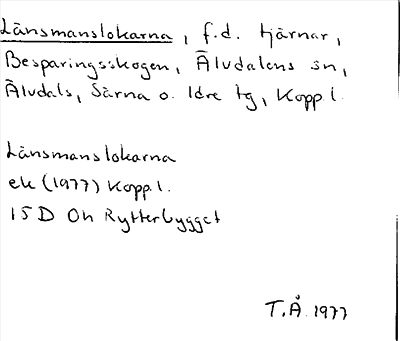 Länsmanslokarna, f.d. tjärnar,
Besparingsskogen, Älvdalens sn,
Älvdals, Särna o. Idre tg, Kopp.l.
Länsmanslokarna
ek (1977) Kopp.l.
15D Oh Rytterbygget
T.Å. 1977